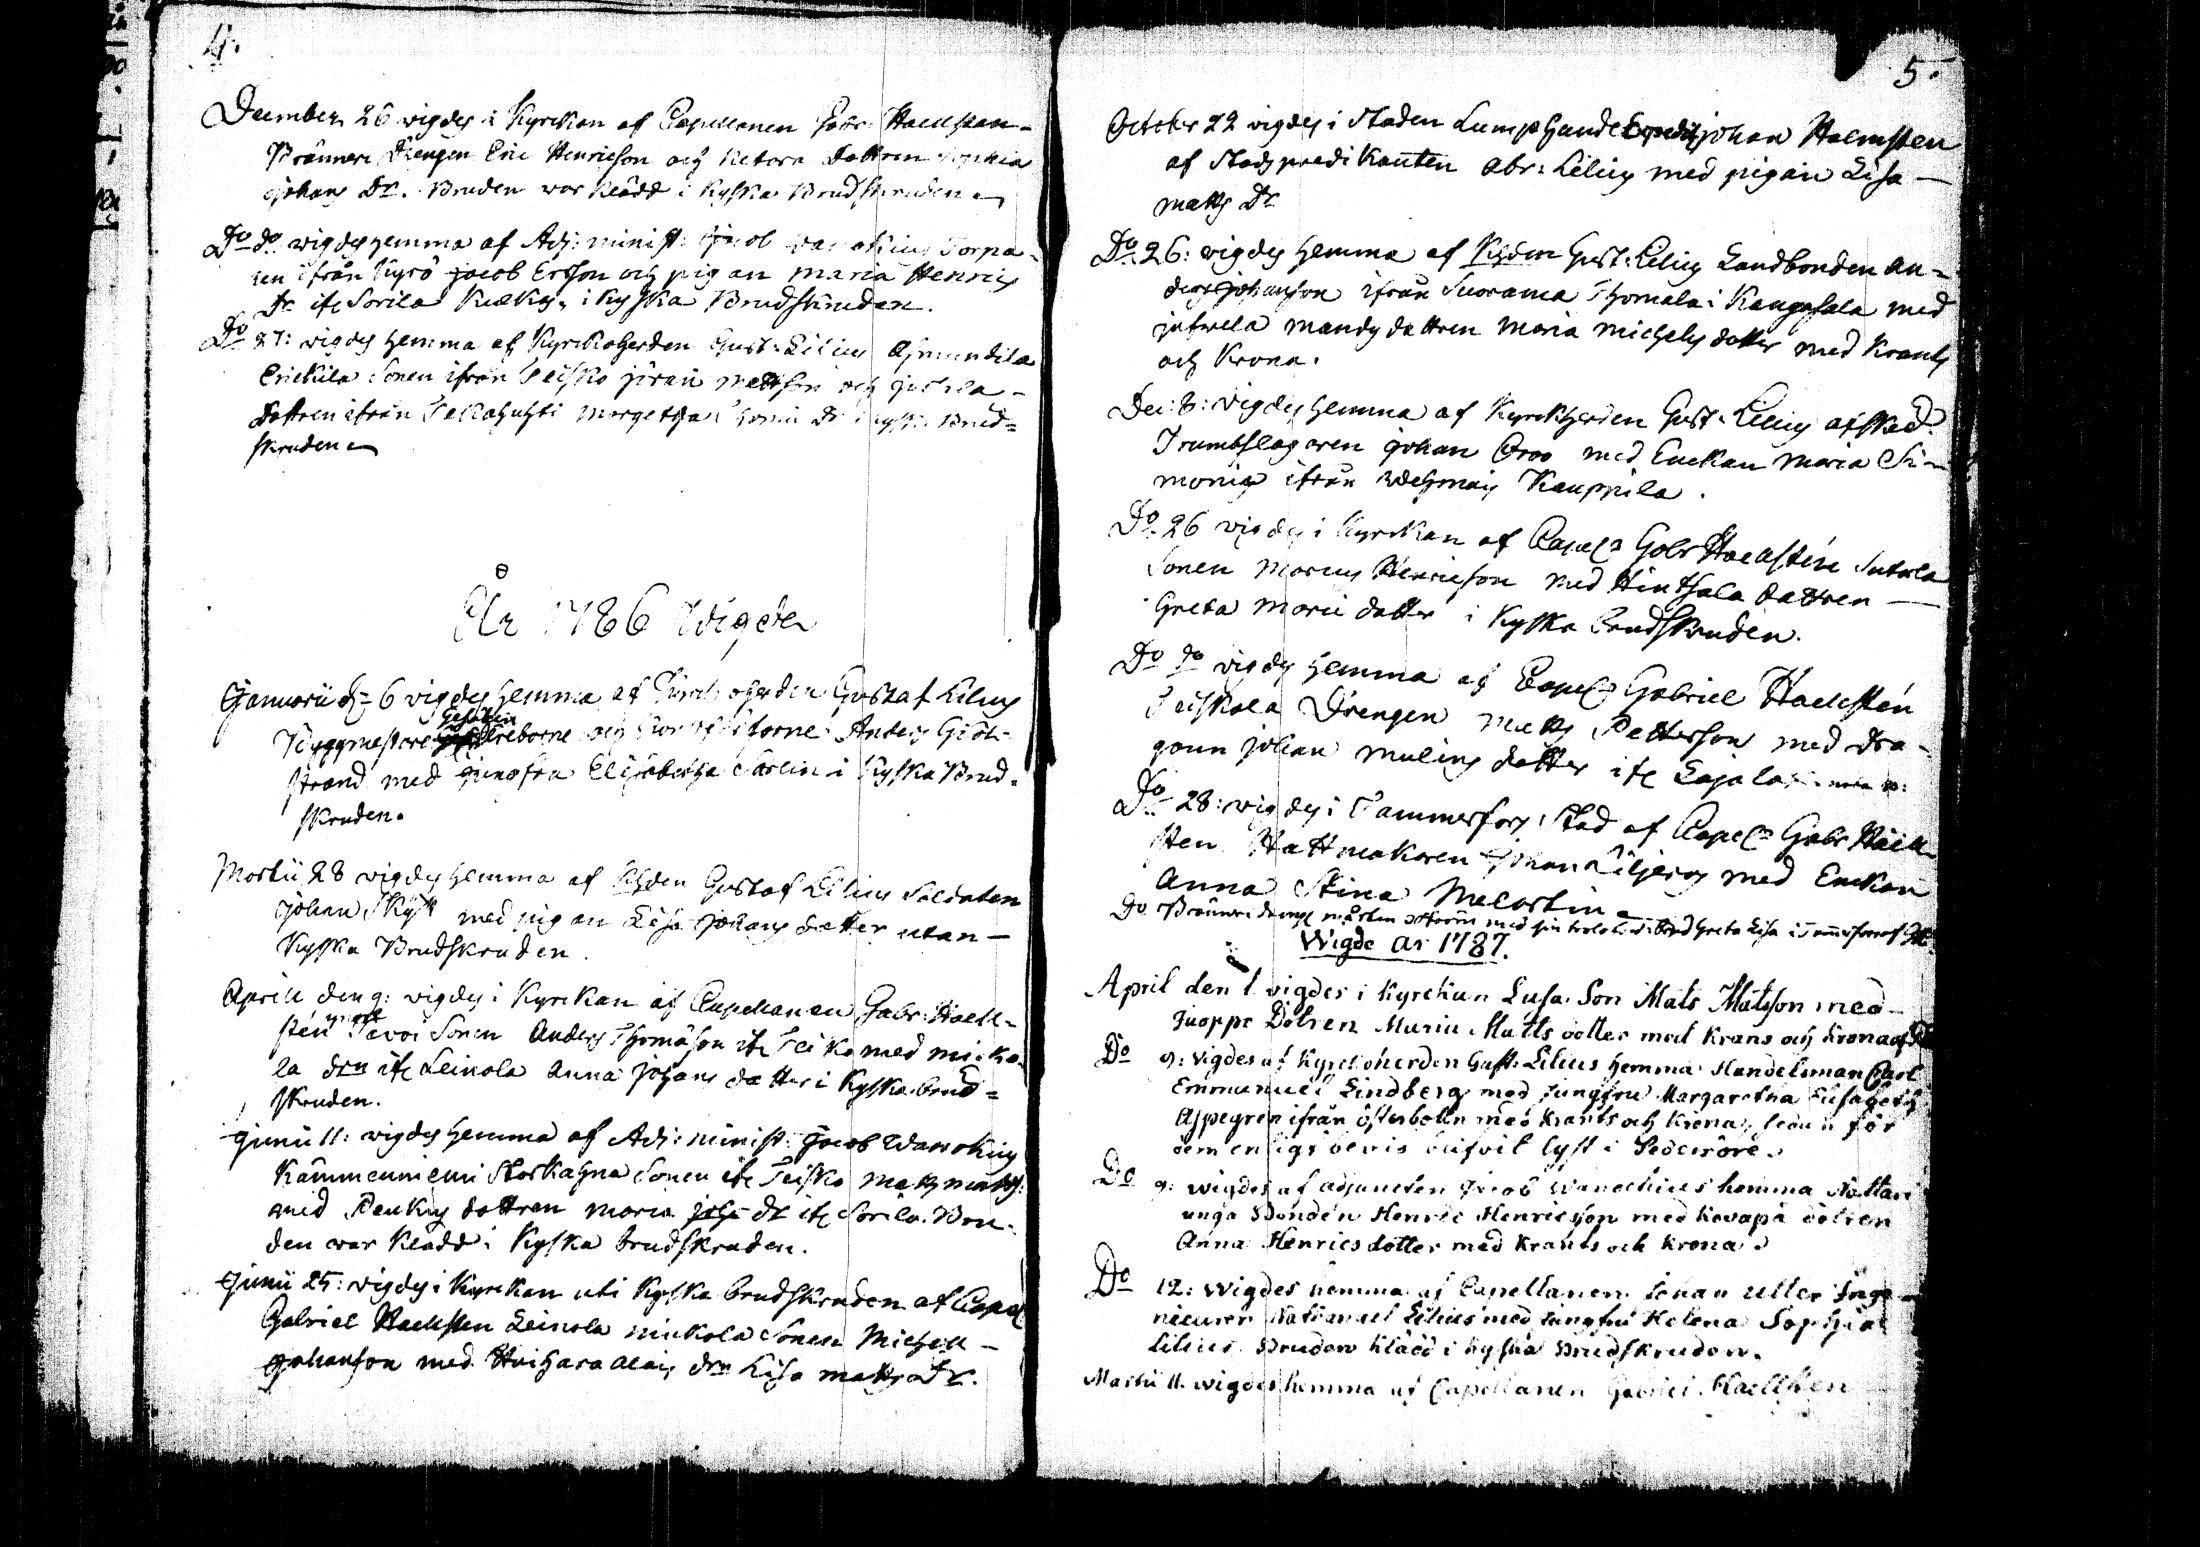 4.
December 26 wigdes i Kyrckan af Capellanen Gabr: Haellsten
Bränneri Drengen Eric Henricson och Ketora dottren Sophia
Johans Dr. Bruden war klädd i Kyska Brudskruden
Do do wigdes hemma af Adj: minist: Jacob Wanochius Torpa-
ren ifrån Kyrö Jacob Ersson och pigan Maria Henrics
Dr ifr Sorila Kuckus, i Kyska Brudskruden.
Do 27: wigdes hemma af Kyrckoherden Gust: Lilius
Erickila Sonen ifrån Teisko Jöran Mattson och
dottren ifrån Takahuhti Margetha Dr i Kyska Brud=
skruden
År 1786 Wigde
Januarii d: 6 wigdes hemma af Kyrckoherden Gustaf Lilius
Byggmestare Gesällen ährborne och Anders Gröt-
strand med Jungfru Elisabetha Carlin i Kyska Brud-
skruden.
Martii 28 wigdes hemma af Khden Gustaf Lilius Soldaten
Johan Skytt med pigan Lisa Johans dotter utan
Kyska Brudskruden.
April den 9: wigdes i Kyrckan af Capellanen Gabr: Haell-
stén Pavoi Sonen Anders Thomason ifr Teisko med Micko-
la drn ifr Leinola Anna Johans dotter i Kyska brud=
skruden.
Junii 11: wigdes hemma af Adj: minist: Jacob Wanochius
Kämmenniemi Storkahna Sonen ifr Teisko Matts Matts:
med Paukus dottren Maria Johs dr ifr Sorila. Bru-
den war klädd i Kyska brudskruden.
Junii 25: wigdes i Kyrckan uti Kyska brudskruden af Capel
Gabriel Haellsten Leinola Mickola Sonen Michell
Johanson med Huihara Alais drn Lisa Matts Dr.
5.
October 22 wigdes i Staden Lumphandl Johan Holmsten
af Stadspredikanten Abr: Lilius med pigan Lisa
Matts Dr
Do 26: wigdes hemma af Khden Gust: Lilius Landbonden An-
ders Johanson ifrån Suorama Thomala i Kangasala med
Juswela Mandis dottren Maria Michels dotter med Krants
och Krona.
Dec: 8: wigdes hemma af Kyrckherden Gust: Lilius afsked:
Trumbslagaren Johan Oroo med Enckan Maria Si-
monis ifrån Wehmais Kauppila.
Do 26 wigdes i Kyrckan af Capel: Gabr Haellstén
Sonen Marcus Henricson med Hintsala dottren
Greta Marii dotter i Kyska brudskruden.
Do do wigdes hemma af Capel: Gabriel Haellstén
Teiskola Drengen Matts Petterson med Dra-
goun Johan Mulins dotter ifr Laiala
Do 28: wigdes i Tammerfors Stad af Capel: Gabr Haell-
sten Hattmakaren Johan Liljeros med Enckan
Anna Stina Melartin
Do Brännri drengen Mårten med Greta Lisa i Tammerfors af
Wigde År 1787.
April den 1 wigdes i Kyrckan Lusa Son Mats Matsson med
Juoppo Dotren Maria Matts dotter med krans och krona af
Do 9: wigdes af Kyrckoherden Gust: Lilius hemma Handelsman Carl
Emmanuel Lindberg med Jungfru Margaretha Elisabeth
Aspegren ifrån Österbotn med krants och krona, sedan för
dem enligt bevis blifvit lyst i Pedersöre.
Do 9: wigdes af adjuncten Jacob Wanochius hemma Nattari
unga Bonden Henric Henricsson med Kovapä dotren
Anna Henricsdotter med krants och krona.
Do 12: wigdes hemma af Capellanen Johan Uller Inge-
nieuren Natanael Lilius med Jungfru Helena Sophia
Lilius. Bruden klädd i kyska Brudskruden.
Martii 11. wigdes hemma af Capellanen Gabriel Haellsten